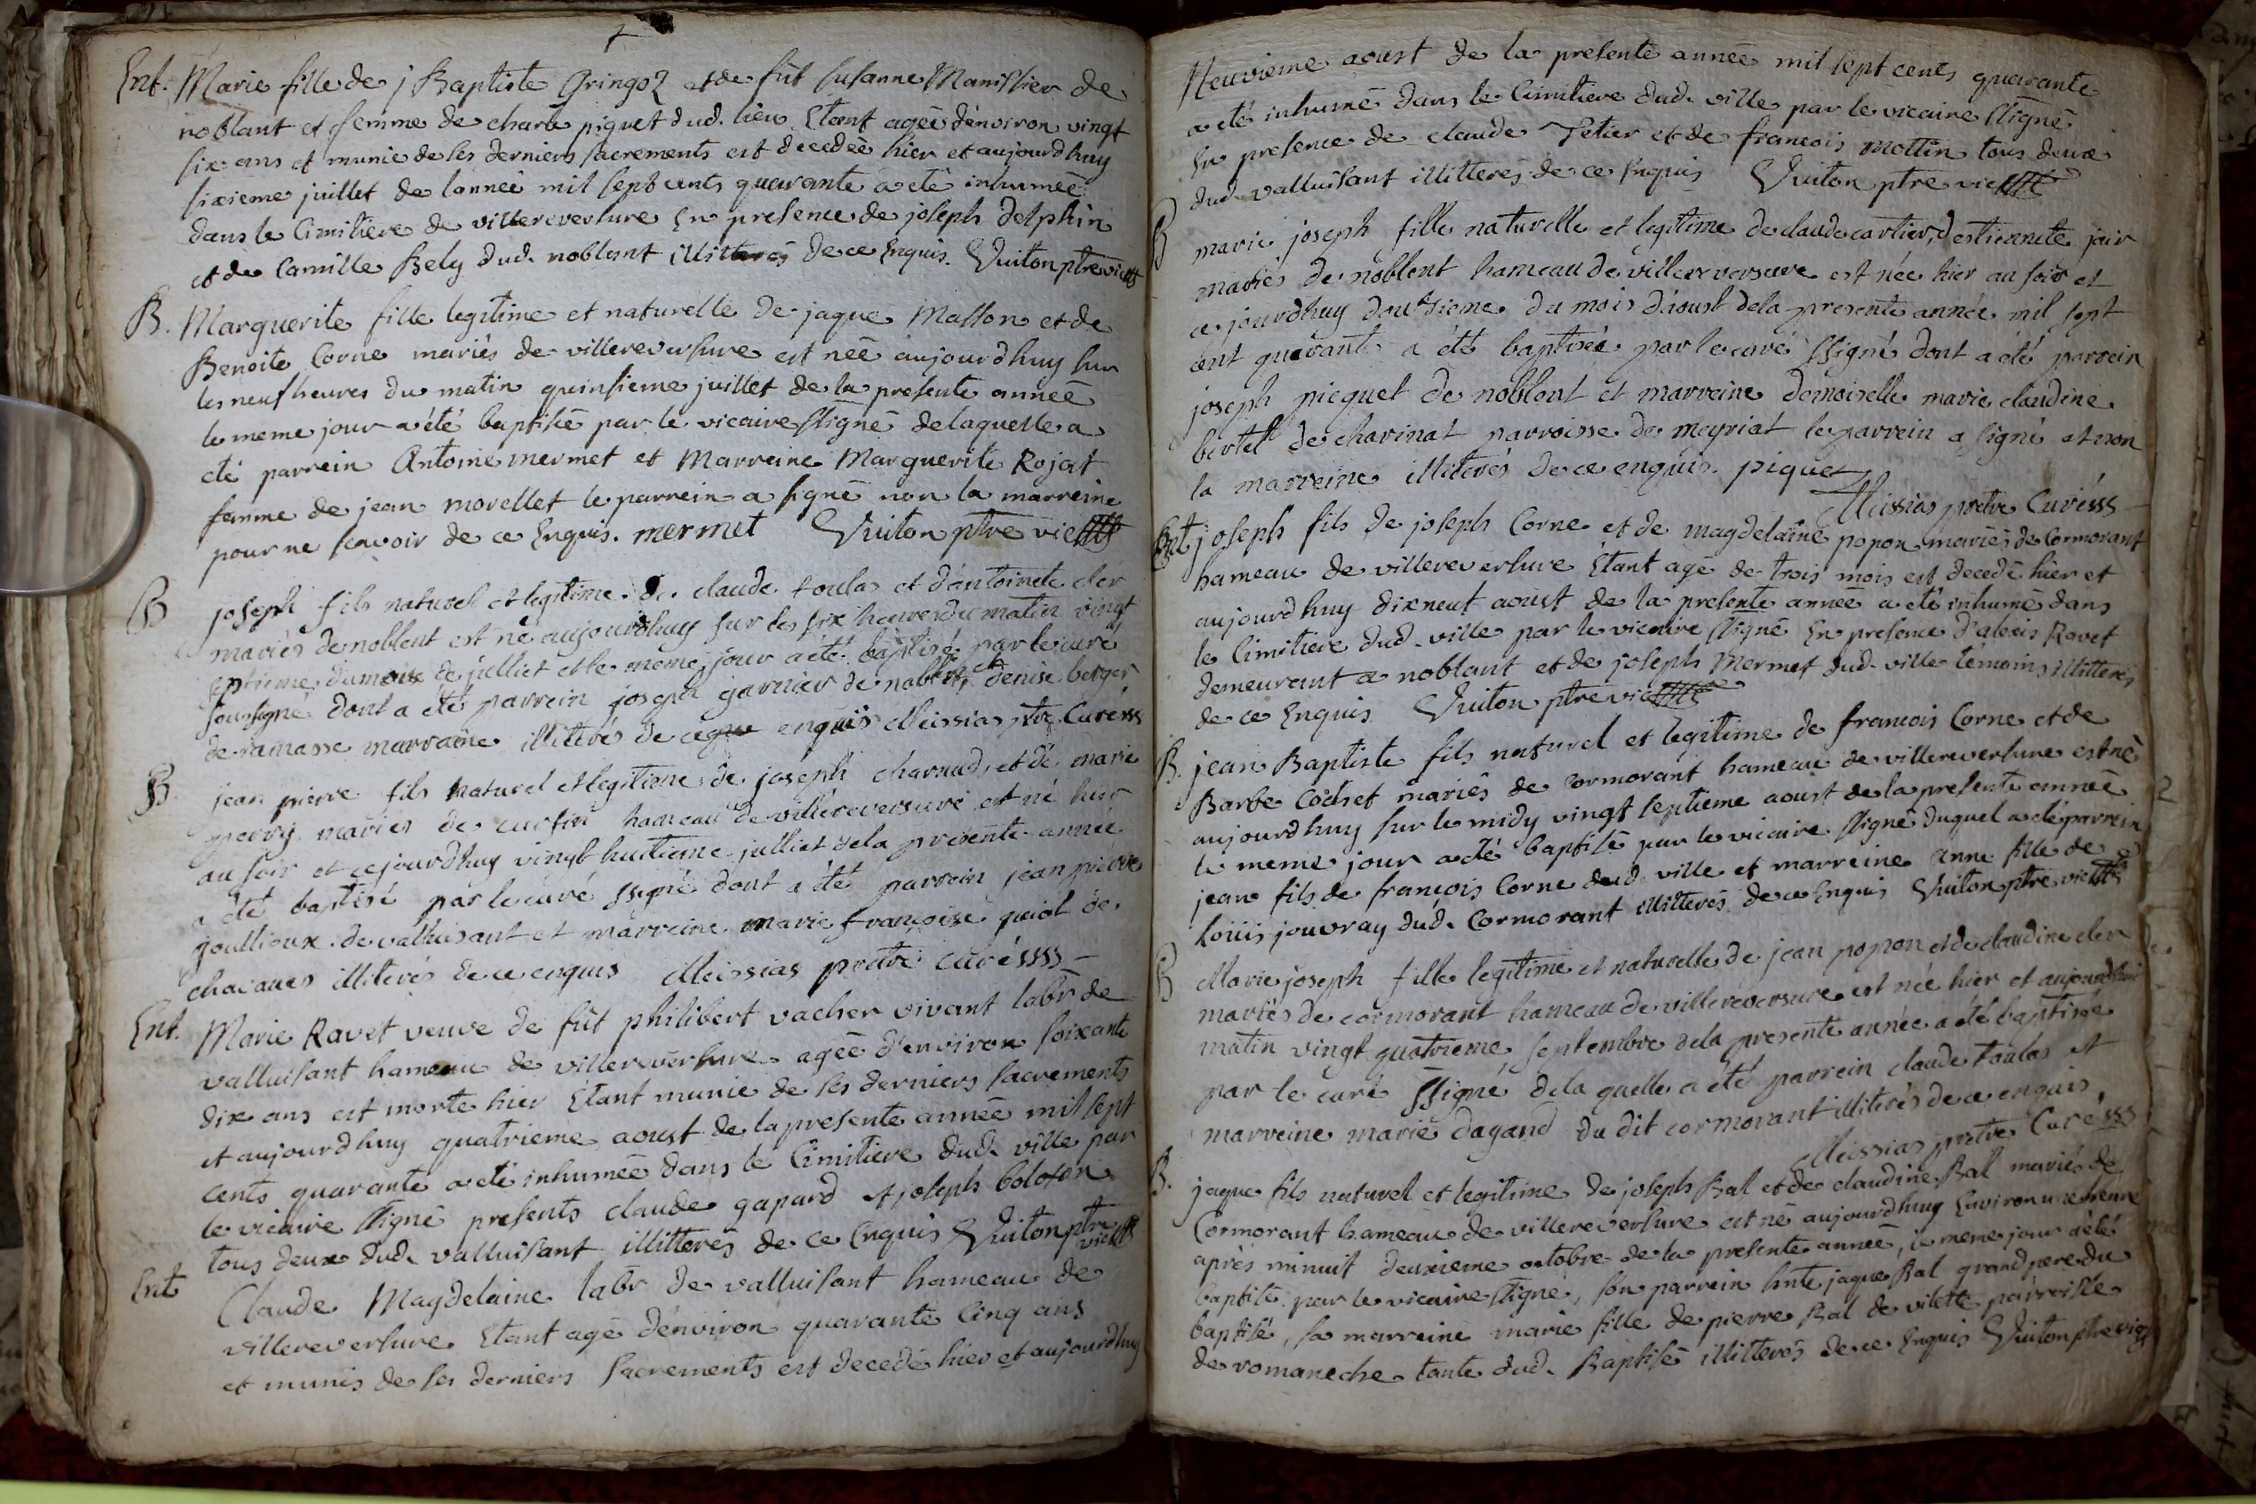 Ent. Marie fille de j Baptiste Gringoz et de fût susanne Manissier de
noblant et femme de charle piquet dud. lieu Etant agée d'environ vingt
six ans et munie de ses derniers sacrements est decedée hier et aujourdhuy
sixieme juillet de lannee mil sept cents quarante a eté inhumée
dans le Cimitiere de villereversure En presence de joseph delphin
et de Camille Bely dud. noblant illitterés de ce Enquis. Vuiton ptre vic
B. Marguerite fille legitime et naturelle de jaque Masson et de
Benoite Corne mariés de villereversure est née aujourdhuy sur
les neuf heures du matin quinsieme juillet de la presente année
le meme jour a été baptisée par le vicaire ssigné de laquelle a
eté parrein Antoine mermet et Marreine Marguerite Rojat
femme de jean morellet le parrein a signé non la marreine
pour ne scavoir de ce Enquis. mermet Vuiton ptre vic
B joseph fils naturel et legitime de claude toulas et d'antoinete cler
mariés de noblent est né aujourdhuy sur les six heures du matin vingt
septieme du mois de julliet et le meme jour a été baptisé par le curé
soussigné dont a été parrein joseph garnier de noblent et denise berger
de ramasse marraine illiterés de ce enquis Meissias ptre Curésss
B jean pierre fils naturel et legitime de joseph charnud et de marie
perry mariés de curfin hameau de villereversure est né hier
au soir et cejourdhuy vingt huitieme julliet de la presente année
a été baptisé par le curé ssigné dont a été parrein jean pierre
goullioux de valhusant et marreine marie françoise guiot de
chacanes illiterés de ce enquis Meissias pretre curéssss
Ent. Marie Ravet veuve de fût philibert vacher vivant labr de
valluisant hameau de villereversure agée d'environ soixante
dix ans est morte hier Etant munie de ses derniers sacrements
et aujourdhuy quatrieme aoust de la presente année mil sept
cents quarante a eté inhumée dans le Cimitiere dud. ville par
le vicaire ssigné presents claude gapard et joseph bolofon
tous deux dud. valluisant illitterés de ce Enquis Vuiton ptre
vic
Ent Claude Magdelaine labr de valluisant hameau de
villereversure Etant agé denviron quarante Cinq ans
et munis de ses derniers sacrements est decedé hier et aujourdhuy
Neuvieme aoust de la presente année mil sept cents quarante
a eté inhumé dans le Cimitiere dud. ville par le vicaire ssigné
En presence de claude Tetier et de francois mottin tous deux
dud. valluisant illitterés de ce Enquis Vuiton ptre vic
B marie joseph fille naturelle et legitime de claude cartier, d'estiennete jair
mariés de noblent hameau de villereversure est née hier au soir et
ce jourdhuy douzieme du mois d'aoust de la presente année mil sept
cent quarante a été baptisée par le curé ssigné dont a été parrein
joseph picquet de noblent et marraine demoiselle marie claudine
bertet de charinat parroisse de meyriat le parrein a signé et non
la marreine illiterés de ce enquis. piquet
Meissias pretre Curésss
Ent joseph fils de joseph Corne et de magdelaine popon mariés de Cormorant
hameau de villereversure Etant agé de trois mois est decedé hier et
aujourdhuy dixneuf aoust de la presente année a eté inhumé dans
le Cimitiere dud. ville par le vicaire ssigné En presence d'alexis Ravet
demeurant a noblant et de joseph Mermet dud. ville témoins illitterés
de ce Enquis Vuiton ptre vic
B. jean Baptiste fils naturel et legitime de francois Corne et de
Barbe Cochet mariés de cormorant hameau de villereversure est né
aujourdhuy sur le midy vingt septieme aoust de la presente année
le meme jour a eté baptisé par le vicaire ssigné duquel a eté parrein
jean fils de francois Corne dud. ville et marreine anne fille de
louis jouvray dud. Cormorant illitterés de ce Enquis Vuiton ptre vic
B Marie joseph fille legitime et naturelle de jean popon et de claudine cler
mariés de cormorant hameau de villereversure est née hier et aujourdhui
matin vingt quatrieme septembre de la presente année a été baptisée
par le curé ssigné de la quelle a été parrein claude toulas et
marreine marie dagand du dit cormorant illiterés de ce enquis
Meissias pretre Curésss
B. jaque fils naturel et legitime de joseph Bal et de claudine Bal mariés de
Cormorant hameau de villereversure est né aujourdhuy Environ une heure
après minuit deuxieme octobre de la presente année, le meme jour a été
baptisé par le vicaire ssigné, son parrein jaque Bal grand pere du
baptisé, sa marreine marie fille de pierre Bal de vilette parroisse
de romaneche tante dud. Baptisé illitterés de ce Enquis Vuiton ptre vic